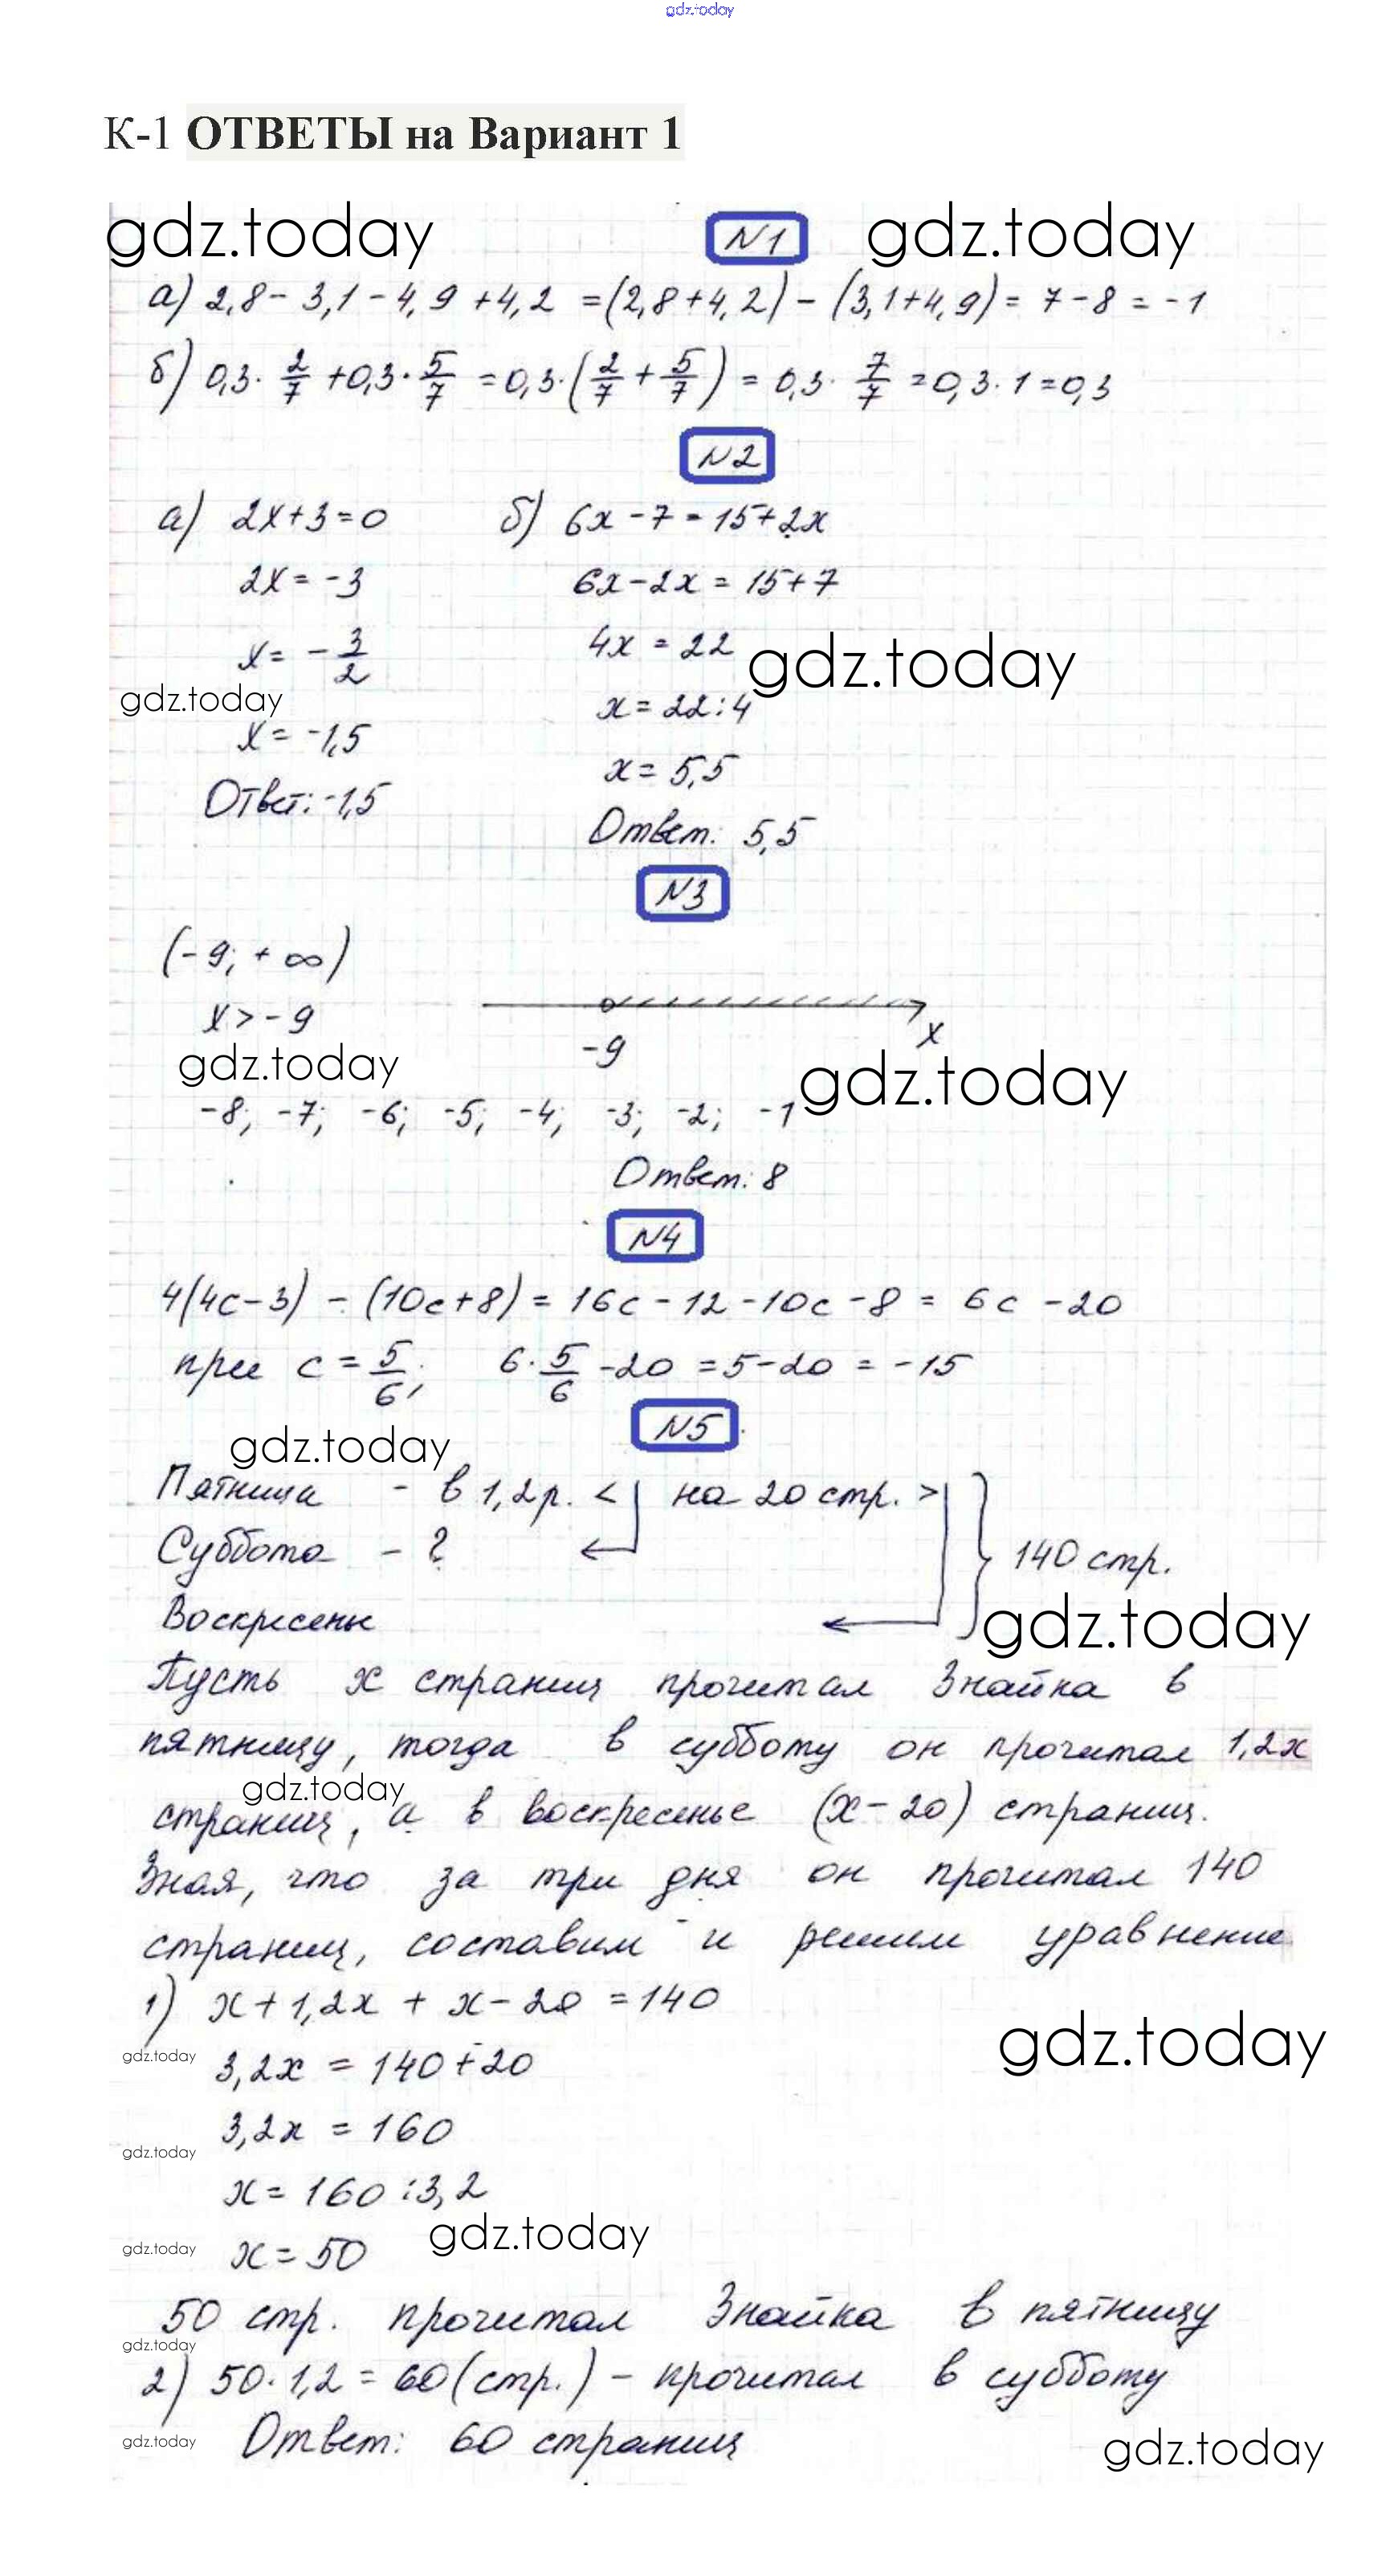 gdz.today
К-1 ОТВЕТЫ на Вариант 1
gdz.today N1 gdz.today
а) 2,8 - 3,1 - 4,9 + 4,2 = (2,8 + 4,2) - (3,1 + 4,9) = 7 - 8 = -1
б) 0,3 · 2/7 + 0,3 · 5/7 = 0,3 · (2/7 + 5/7) = 0,3 · 7/7 = 0,3 · 1 = 0,3
N2
а) 2x + 3 = 0
2x = -3
x = - 3/2
gdz.today
x = -1,5
Ответ: -1,5
б) 6x - 7 = 15 + 2x
6x - 2x = 15 + 7
4x = 22
gdz.today
x = 22 : 4
x = 5,5
Ответ: 5,5
N3
(-9; +∞)
x > -9
-9 x
gdz.today
gdz.today
-8; -7; -6; -5; -4; -3; -2; -1
Ответ: 8
N4
4(4c - 3) - (10c + 8) = 16c - 12 - 10c - 8 = 6c - 20
при c = 5/6, 6 · 5/6 - 20 = 5 - 20 = -15
N5
gdz.today
Пятница - в 1,2 р. < на 20 стр. >
Суббота - ? 140 стр.
Воскресенье
gdz.today
Пусть x страниц прочитал Знайка в
пятницу, тогда в субботу он прочитал 1,2x
gdz.today
страниц, а в воскресенье (x - 20) страниц.
Зная, что за три дня он прочитал 140
страниц, составим и решим уравнение
1) x + 1,2x + x - 20 = 140
gdz.today
gdz.today
3,2x = 140 + 20
3,2x = 160
gdz.today
x = 160 : 3,2
gdz.today
gdz.today
x = 50
50 стр. прочитал Знайка в пятницу
gdz.today
2) 50 · 1,2 = 60 (стр.) - прочитал в субботу
gdz.today
Ответ: 60 страниц
gdz.today